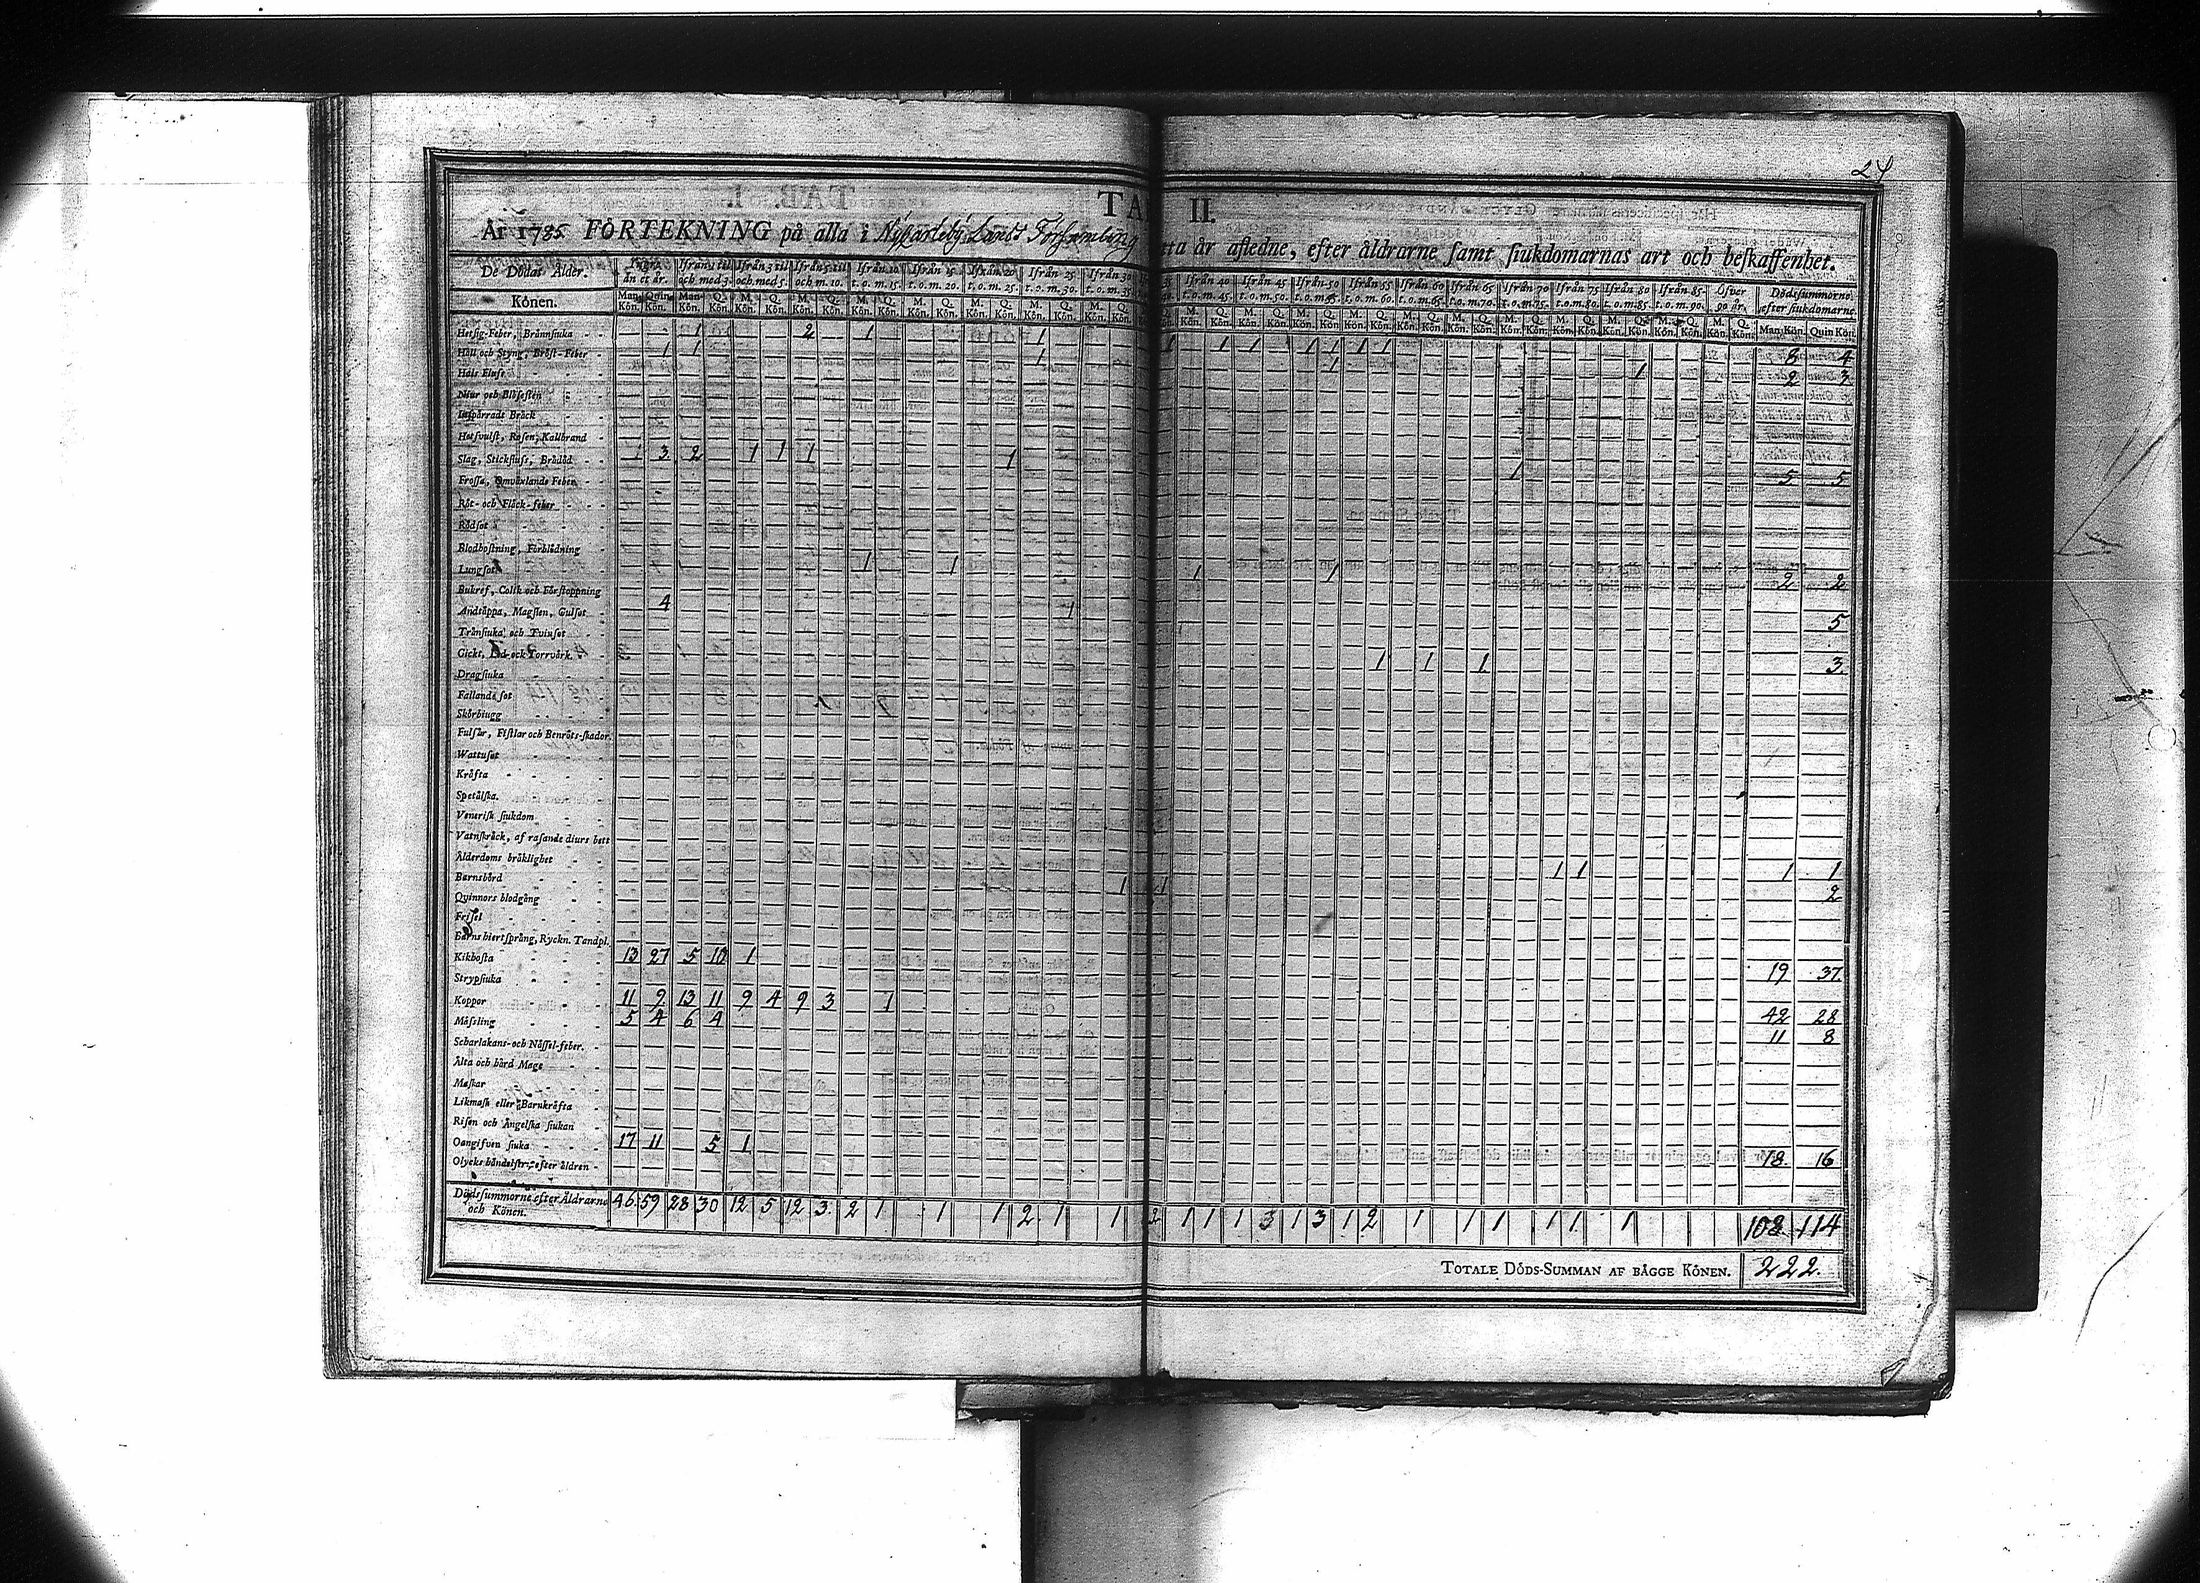 24
TAB. II.
År 1785. FÖRTEKNING på alla i Nykarleby Lands Församling detta år afledne, efter åldrarne samt siukdomarnas art och beskaffenhet.
De Dödas Ålder. Yngre än et år. Ifrån 1 til och med 3. Ifrån 3 til och med 5. Ifrån 5 til och m. 10. Ifrån 10 t. o. m. 15. Ifrån 15 t. o. m. 20. Ifrån 20 t. o. m. 25. Ifrån 25 t. o. m. 30. Ifrån 30 t. o. m. 35. Ifrån 40 t. o. m. 45. Ifrån 45 t. o. m. 50. Ifrån 50 t. o. m. 55. Ifrån 55 t. o. m. 60. Ifrån 60 t. o. m. 65. Ifrån 65 t. o. m. 70. Ifrån 70 t. o. m. 75. Ifrån 75 t. o. m. 80. Ifrån 80 t. o. m. 85. Ifrån 85 t. o. m. 90. Öfver 90 år. Dödssummorne efter siukdomarne.
Könen. Man Kön. Quin Kön. Man Kön. Quin Kön. M. Kön. Q. Kön. M. Kön. Q. Kön. Man Kön. Quin Kön.
Hetsig-Feber, Brännsiuka 1 2 1 1 1 1 1 1 1 1 1 8 4
Håll och Styng, Bröst-Feber 1 1 1 1 1 2 3
Hals Fluss
Niur och Blåsesten
Inspärradt Bråck
Hetsvulst, Rosen, Kallbrand
Slag, Stickfluss, Brådöd 1 3 2 1 1 1 1 1 5 5
Frossa, Omväxlande Feber
Röt- och Fläck-feber
Rödsot
Blodhostning, Förblödning
Lungsot 1 1 1 1 2 2
Bukref, Colik och Förstoppning
Andtäppa, Magsten, Gulsot 4 1 5
Trånsiuka, och Tvinsot
Gickt, Led- och Torrvärk 1 1 1 3
Dragsiuka
Fallande sot
Skörbiugg
Fulsår, Fistlar och Benröts-skador
Wattusot
Kräfta
Spetälska.
Venerisk siukdom
Vatnskräck, af rasande diurs bett
Ålderdoms bräklighet 1 1 1 1
Barnsbörd 1 1 2
Qvinnors blodgång
Frissel
Barns hiertsprång, Ryckn. Tandpl.
Kikhosta 13 27 5 10 1 19 37
Strypsiuka
Koppor 11 9 13 11 9 4 9 3 1 42 28
Mässling 5 4 6 4 11 8
Scharlakans- och Nässel-feber.
Älta och hård Mage
Maskar
Likmask eller Barnkräfta
Risen och Ängelska siukan
Oangifven siuka 17 11 5 1 18 16
Olycks händelser, efter åldren
Dödssummorne efter Åldrarne och Könen. 46 59 28 30 12 5 12 3 2 1 1 1 2 1 1 2 1 1 1 3 1 3 1 2 1 1 1 1 1 1 108 114
TOTALE DÖDS-SUMMAN AF BÅGGE KÖNEN. 222.